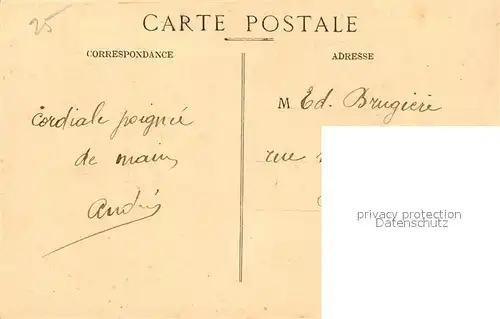 25
CARTE POSTALE
CORRESPONDANCE
ADRESSE
M Ed. Brugière
Cordiale poignée
de main
rue
André
privacy protection
Datenschutz